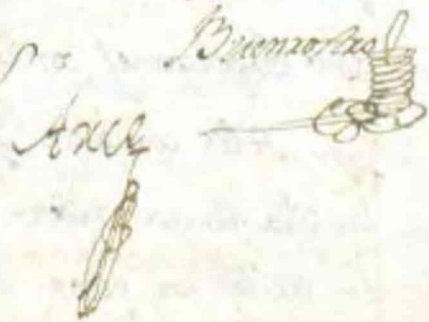 Buenrostro
Arce